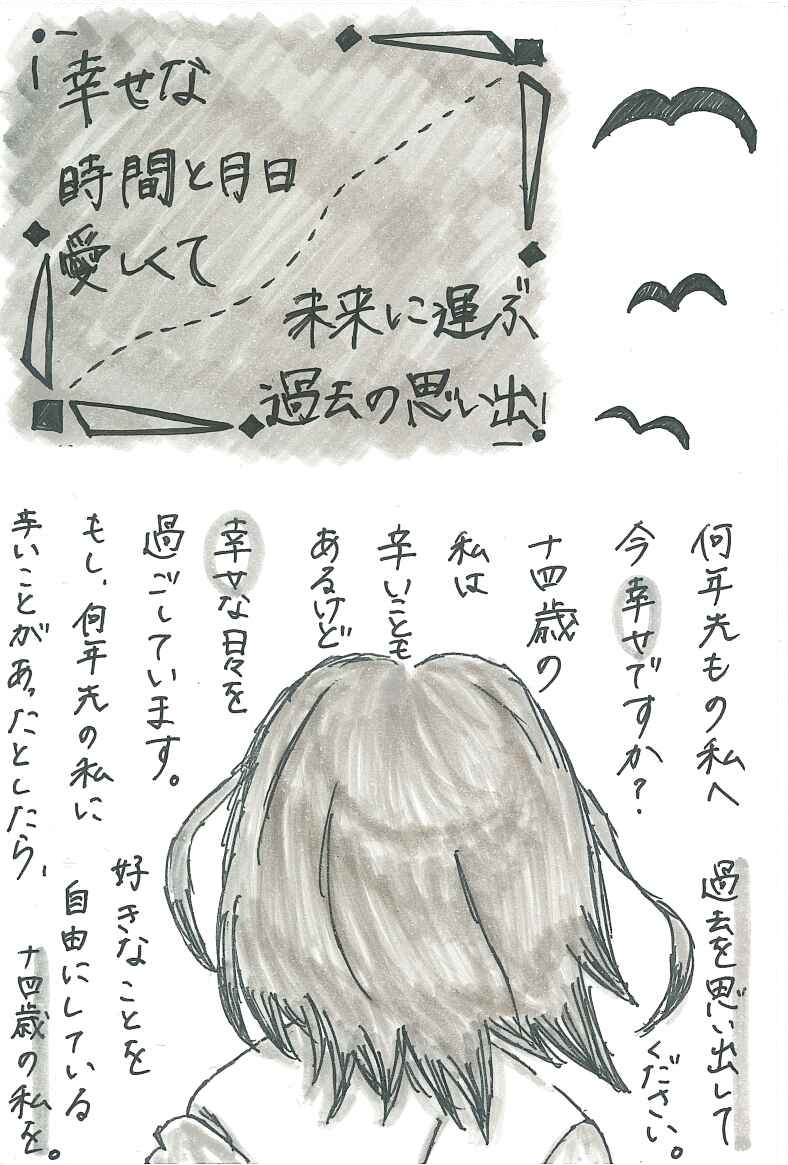 幸せな
時間と月日
愛しくて
未来に運ぶ
過去の思い出
何年先もの私へ
今幸せですか?
十四歳の
私は
辛いことも
あるけど
幸せな日々を
過ごしています。
もし、何年先の私に
辛いことがあったとしたら、
過去を思い出して
ください。
好きなことを
自由にしている
十四歳の私を。